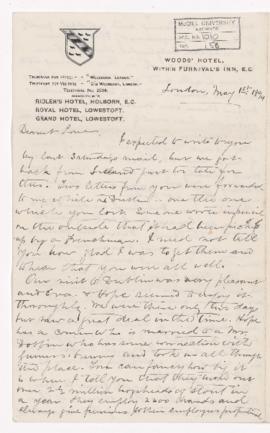 McGILL UNIVERSITY
ARCHIVES
ACC. NO. 1010
REF. 156
TELEGRAMS FOR HOTEL
TELEPHONE No.
WOODS' HOTEL,
WITHIN FURNIVAL'S INN, E.C.
RIDLER'S HOTEL, HOLBORN, E.C.
ROYAL HOTEL, LOWESTOFT.
GRAND HOTEL, LOWESTOFT.
London, May 1st 1894
Dearest
I expected to write to you
by last Saturdays mail, but we got
back from Ireland just too late for
this. Two letters from you were forwarded
to me while in Dublin — one the one
which you lost. Some one wrote
on the outside that it had been picked
up by a Frenchman. I need not tell
you how glad I was to get them and
to hear that you were all well.
Our visit to Dublin was very pleasant
and Eva & seemed to enjoy it
thoroughly. We were there only five days
but saw a great deal in the time.
has a cousin who is married to a Mr.
who has some connection with
Guiness's and took us all through
the place. You can fancy how big it
is when I tell you that they
over 2½ million hogsheads of stout in
a year. They employ 2600 hands and
always give pensions to their employees